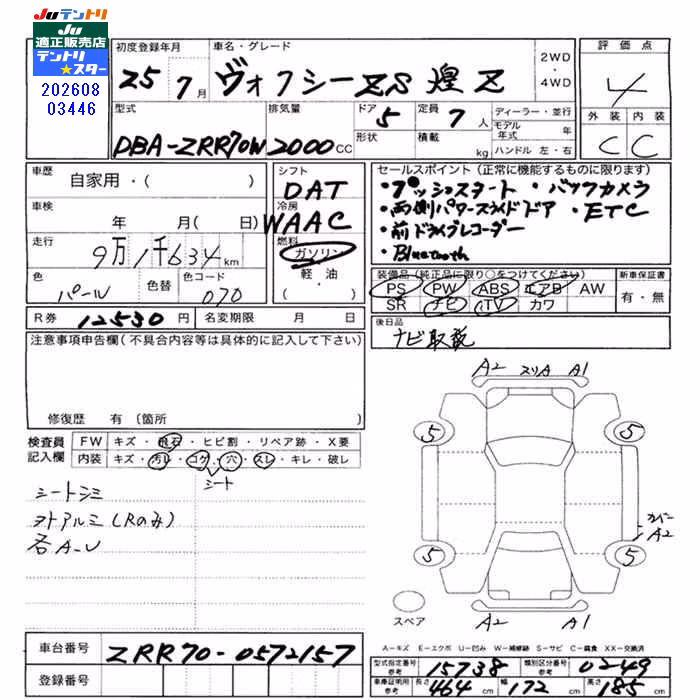 JUテントリ
JU
適正販売店
テントリ
スター
202608
03446
初度登録年月 車名・グレード 2WD・4WD 評価点
25 7月 ヴォクシーZS 煌Z 4
型式 排気量 ドア 定員 ディーラー・並行 外装 内装
DBA-ZRR70W 2000CC 5 7人 モデル年式 年 C C
形状 積載 kg ハンドル 左・右
車歴 自家用・( )
シフト DAT
車検 年 月(日)
冷房 WAAC
走行 9万1千634km
燃料 ガソリン・軽油・( )
色 パール 色替 色コード 070
R券 12530円 名変期限 月 日
セールスポイント(正常に機能するものに限ります)
・プッシュスタート ・バックカメラ
・両側パワースライドドア ・ETC
・前ドライブレコーダー
・Bluetooth
装備品(純正品に限り○をつけてください) 新車保証書
PS PW ABS エアB AW 有・無
SR ナビ TV カワ
後日品
ナビ取説
注意事項申告欄(不具合内容等は具体的に記入して下さい)
修復歴 有(箇所 )
検査員記入欄 FW キズ・飛石・ヒビ割・リペア跡・X要
内装 キズ・汚レ・コゲ・穴・スレ・キレ・破レ
シート
シートシミ
ヲトアルミ(Rのみ)
各A-U
A2 スリA A1
5 5
カバー
A2
5 5
スペア
A2 A1
A-キズ E-エクボ U-凹み W-補修跡 S-サビ C-腐食 XX-交換済
車台番号 ZRR70-0572157
登録番号
型式指定番号 参考 15738 類別区分番号 参考 0249
車庫証明用 参考 長さ 464cm 幅 172cm 高さ 185cm